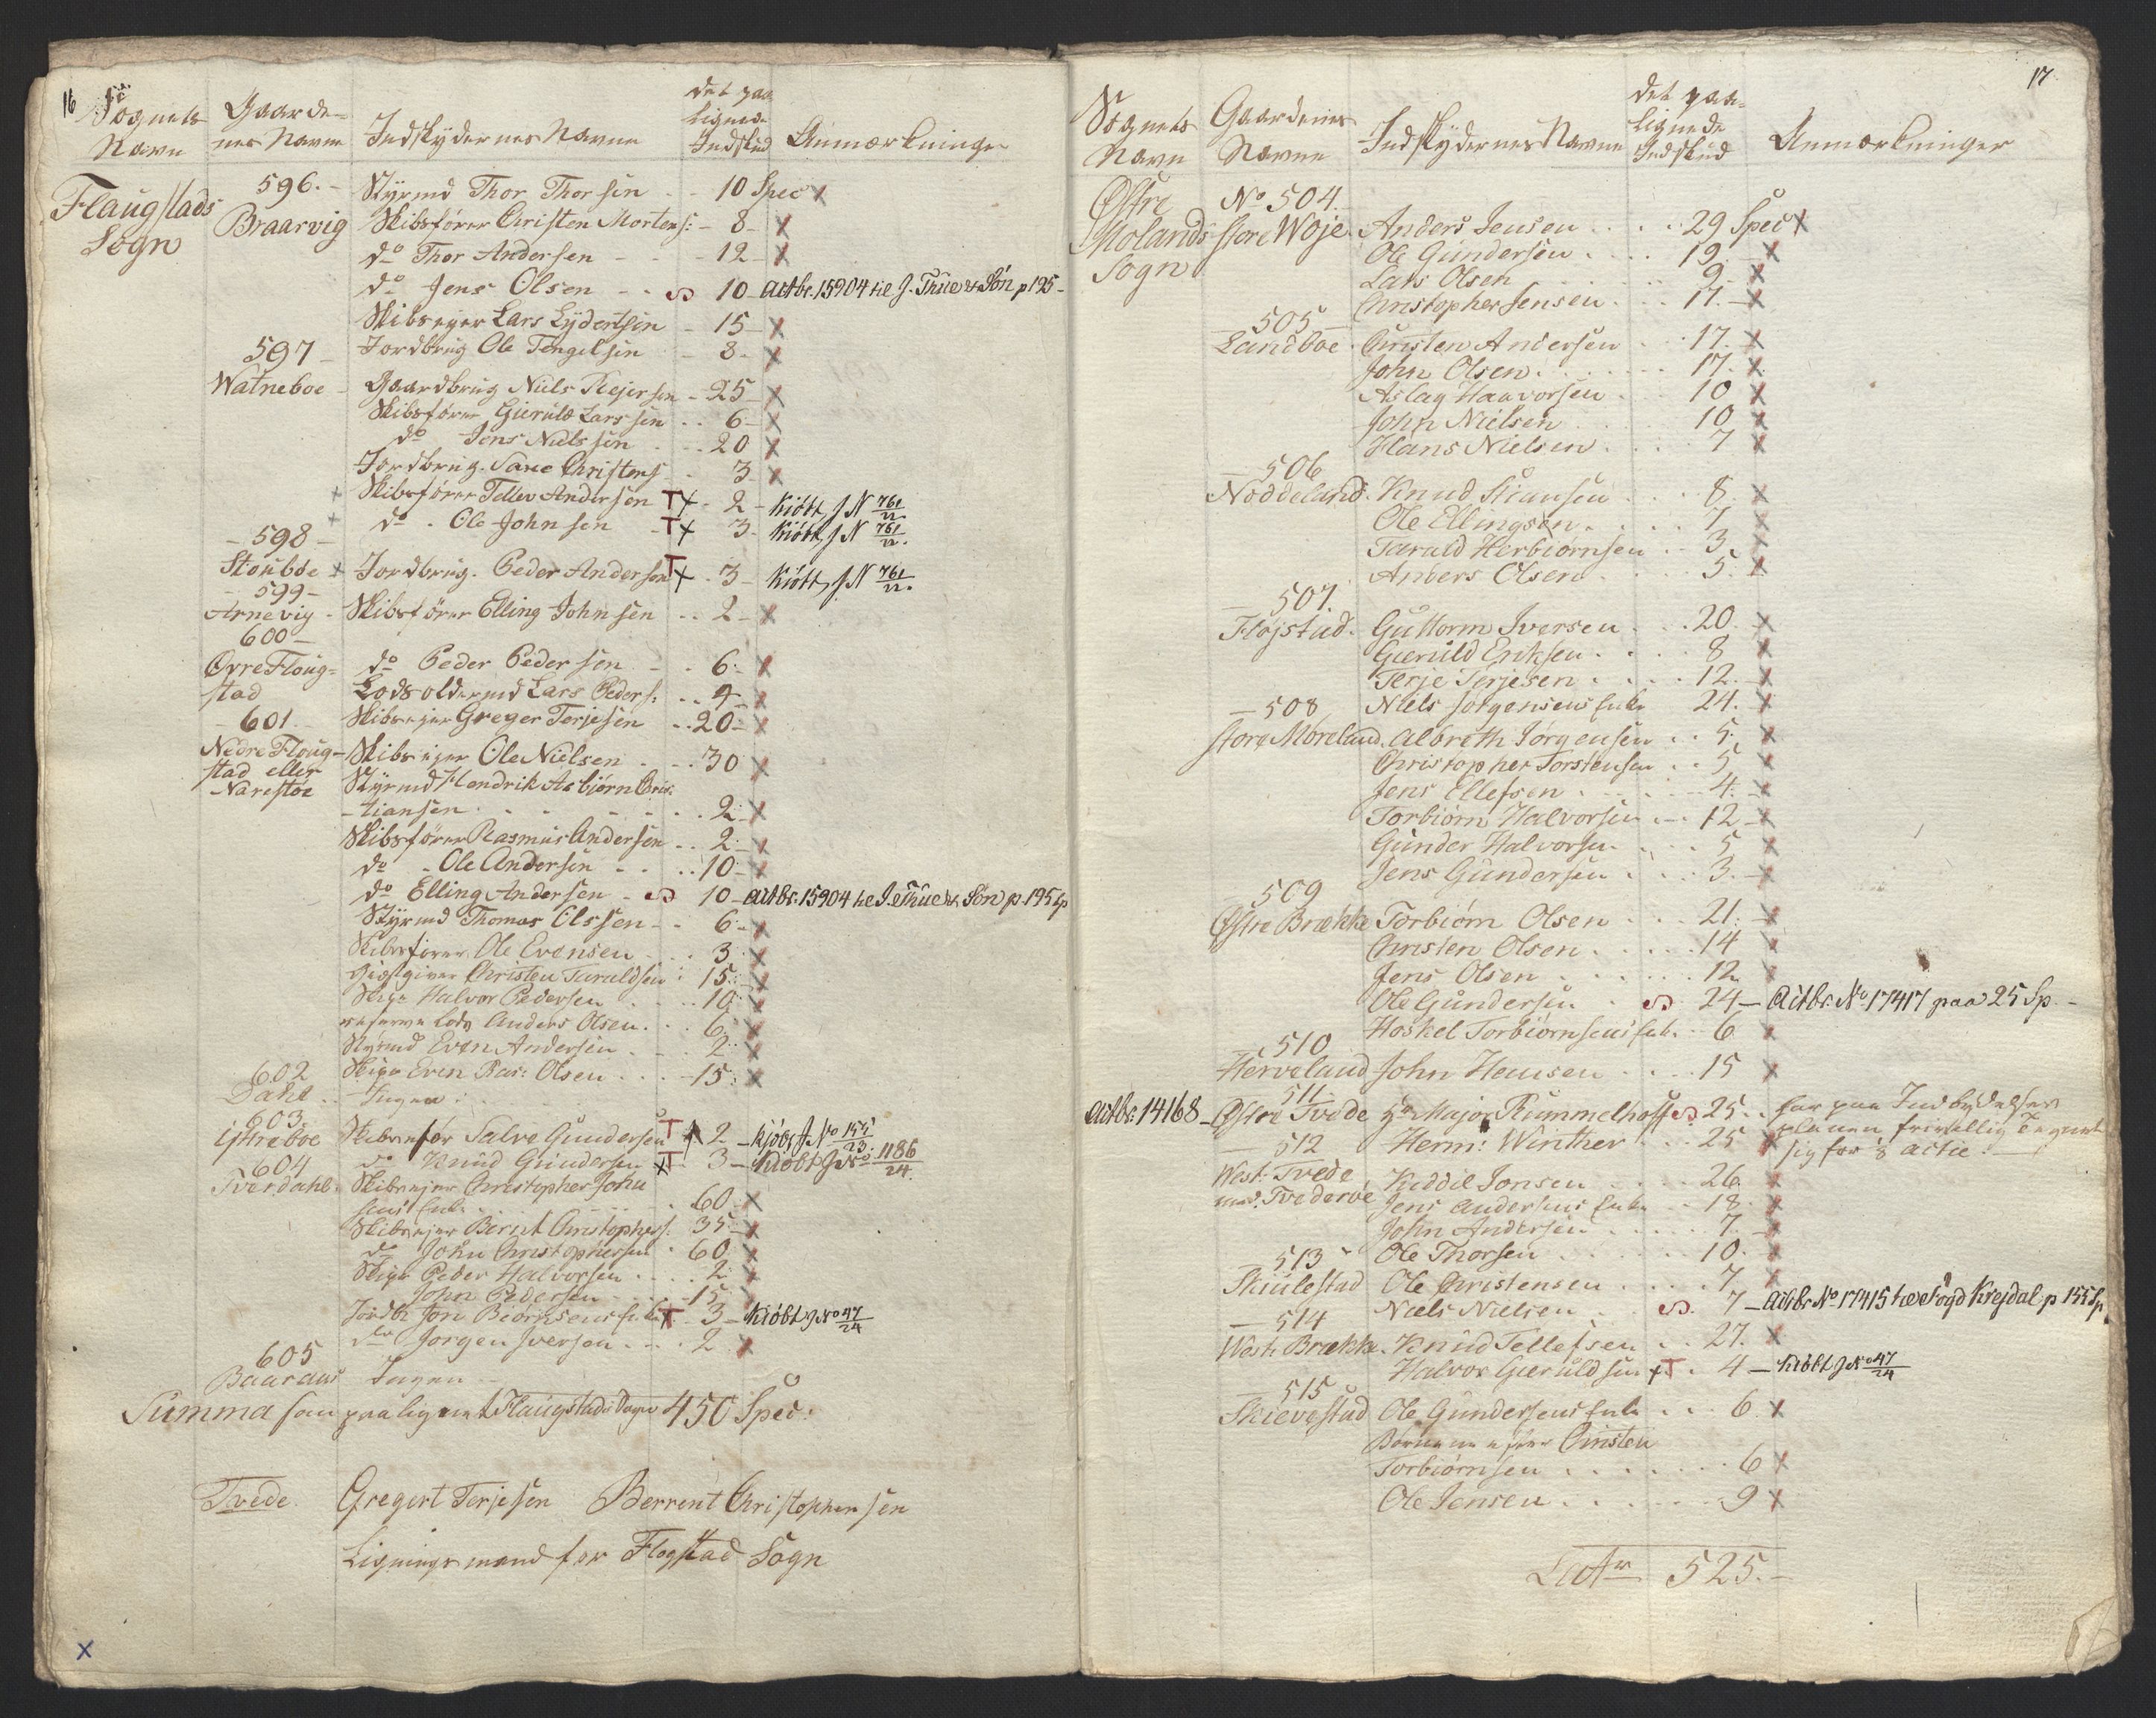 16
Sognets Navn
Gaardenes Navne
Indskydernes Navne
det paalignede Indskud
Anmærkninger
Flaugstads Sogn
596.
Braarvig
Styrmd Thor Thorsen - - 10 Spec x
Skibsfører Christen Mortens: - 8 - x
do Thor Andersen - - - 12 - x
do Jens Olsen - - 10 - Actbr. 15904 til J. Thue & Søn p 195 -
Skibseyer Lars Lydertsen - 15 - x
597 -
Watneboe -
Jordbrug Ole Tengelsen - 8 - x
Gaardbrug Niels Rejersen - 25 - x
Skibsfører Gieruld Larssen . . 6 - x
do Jens Nielssen . . 20 x
Jordbrug. Sane Christens - 3 - x
x Skibsfører Tellev Andersen T x - 2 - kiöbt, J N 761/22
x do . Ole Johnsen - T x 3 - kiöbt, J N 761/22.
- 598 -
Stouboe
x Jordbrug. Peder Andersen T x . 3 - kiöbt, J N 761/22.
- 599 -
Arnevig -
Skibsfører Elling Johnsen . . 2 - x
600 -
Øvre Flougstad
do Peder Pedersen - . 6: x
Lodsoldermd Lars Peders: . . 4 - x
- 601 -
Skibseyer Greger Terjesen . . 20 - x
Nedre Flougstad eller Narestøe
Skibseyer Ole Nielsen . . . 30 x
Styrmd Hendrik Asbiørn Cris-
tiansen . . . 2: x
Skibsfører Rasmus Andersen . . 2: x
do . Ole Andersen . . . 10 - x
do Elling Andersen - 10 - Actbr. 15904 til J. Thue & Søn p. 195 Sp
Styrmd Thomas Olssen - . 6 - x
Skibsfører Ole Evensen . . . 3 x
Giestgiver Christen Taraldsen : 15: x
Skipr Halvor Pedersen . . . 10 x
reserve Lods Anders Olsen . . . 6: x
Styrmd Even Andersen . . . 2: x
602
Dahl . .
Skipr Even Ras: Olsen . . . 15: x
Ingen :
603
Gjtreboe
Skibsfør Salve Gundersen T x 2 - kjöbt J No 155/23.
604
do Knud Gundersen x T 3 - kiöbt J No 1186/24.
Tverdahl .
Skibseyer Christopher John
sens Enke . . . 60 x
Skibseyer Bernt Christophers: 35 - x
do John Christophersen . 60 x
Skipr Peder Halvorsen . . . 2: x
John Pedersen . . . 15 x
Jordb: Jon Biørnsens Enke T . 3 - kiöbt J No 47/24
do Jørgen Iversen . . . 2 x
605
Baaraas
Ingen -
Summa som paalignet Flaugstads Sogn 450 Spec:
Tvede.
Gregert Terjesen Berrent Christophersen
Ligningsmænd for Flogstad Sogn
x
17
Sognets Navn
Gaardenes Navne
Indskydernes Navne
det paalignede Indskud
Anmærkninger
Østre Molands Sogn
No 504.
store Woje.
Anders Jensen . . . . 29 Spec x
Ole Gundersen . . . . 19. x
Lars Olsen . . . . 9. x
Christopher Jensen . . . 11. - x
- 505 -
Landboe .
Christen Andersen . . 17. x
John Olsen . . . . 17. x
Aslag Haavorsen . . . 10 x
John Nielsen . . . 10 x
Hans Nielsen . . . . 7 x
- 506
Noddeland.
Knud Stiansen . . . 8. x
Ole Ellingsen . . . . 7 x
Tarald Herbiørnsen . . 3. x
Anders Olsen . . . . 5. x
- 507.
Flojstad.
Guttorm Iversen . . . 20. x
Gieruld Eriksen . . . . 8 x
Terje Terjesen . . . . 12. x
- 508
store Moreland.
Niels Jørgensens Enke 24. x
Albreth Jørgensen . . 5: x
Christopher Torstensen . . 5 x
Jens Ellefsen . . . . 4. x
Torbiørn Halvorsen . . . 12 x
Gunder Halvorsen . . . . 5 x
Jens Gundersen . . . . 3. x
509
Østre Brække
Torbiørn Olsen . . . 21. x
Christen Olsen . . . . 14 x
Jens Olsen . . . . . 12 x
Ole Gundersen . . 24 - Actbr. No 17417 paa 25 Sp. -
Hoskel Torbiørnsens Enk. . 6 x
- 510
Herveland
John Hansen . . . . 15 x
Actbr. 14168 -
511.
Østre Tvede
Hr Major Rummelhoff 25. . har paa Indbydelses
planen frivillig tegnet
sig for 8 actie
512
Herm: Winther . . . 25 x
West. Tvede med. Tvederøe
Kiddil Jonsen . . . 26 x
Jens Andersens Enke . . 18. x
John Andersen . . . . 7. x
513
Ole Thorsen . . . . 10. x
Skiulestad
Ole Christensen . . . . 7 x
Niels Nielsen . . . 7 - Actbr. No 17415 til Fogd Krejdal p 155 Sp
- 514
West. Brække.
Knud Tellefsen . . 27. x
Halvor Gieruldsen x T . 4 - kiöbt J No 47/24
515
Skievestad
Ole Gundersens Enke . . . 6. x
Børnene efter Christen
Torbiørnsen . . . . 6 x
Ole Jensen . . . . 9 x
Latr 525. -